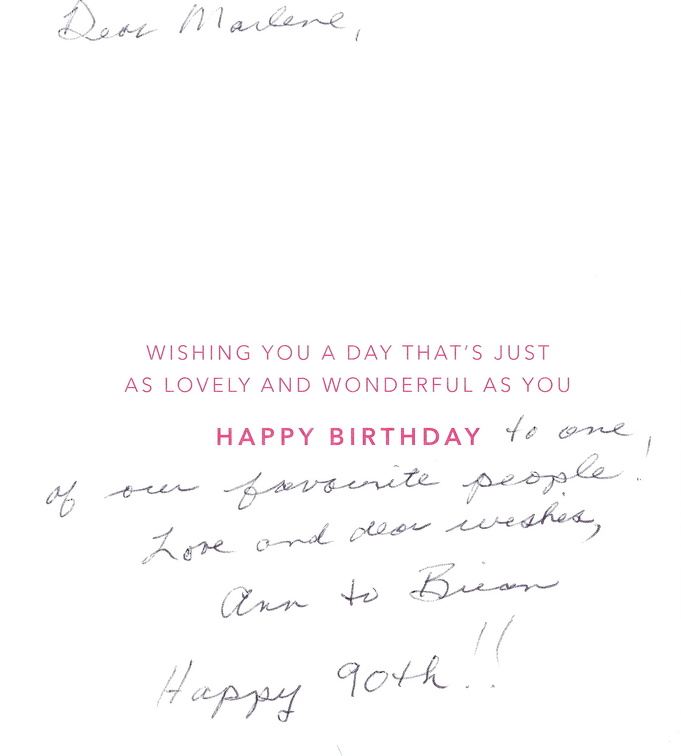 Dear Marlene,
WISHING YOU A DAY THAT'S JUST
AS LOVELY AND WONDERFUL AS YOU
HAPPY BIRTHDAY to one
of our favourite people!
Love and dear wishes,
Ann to Brian
Happy 90th!!